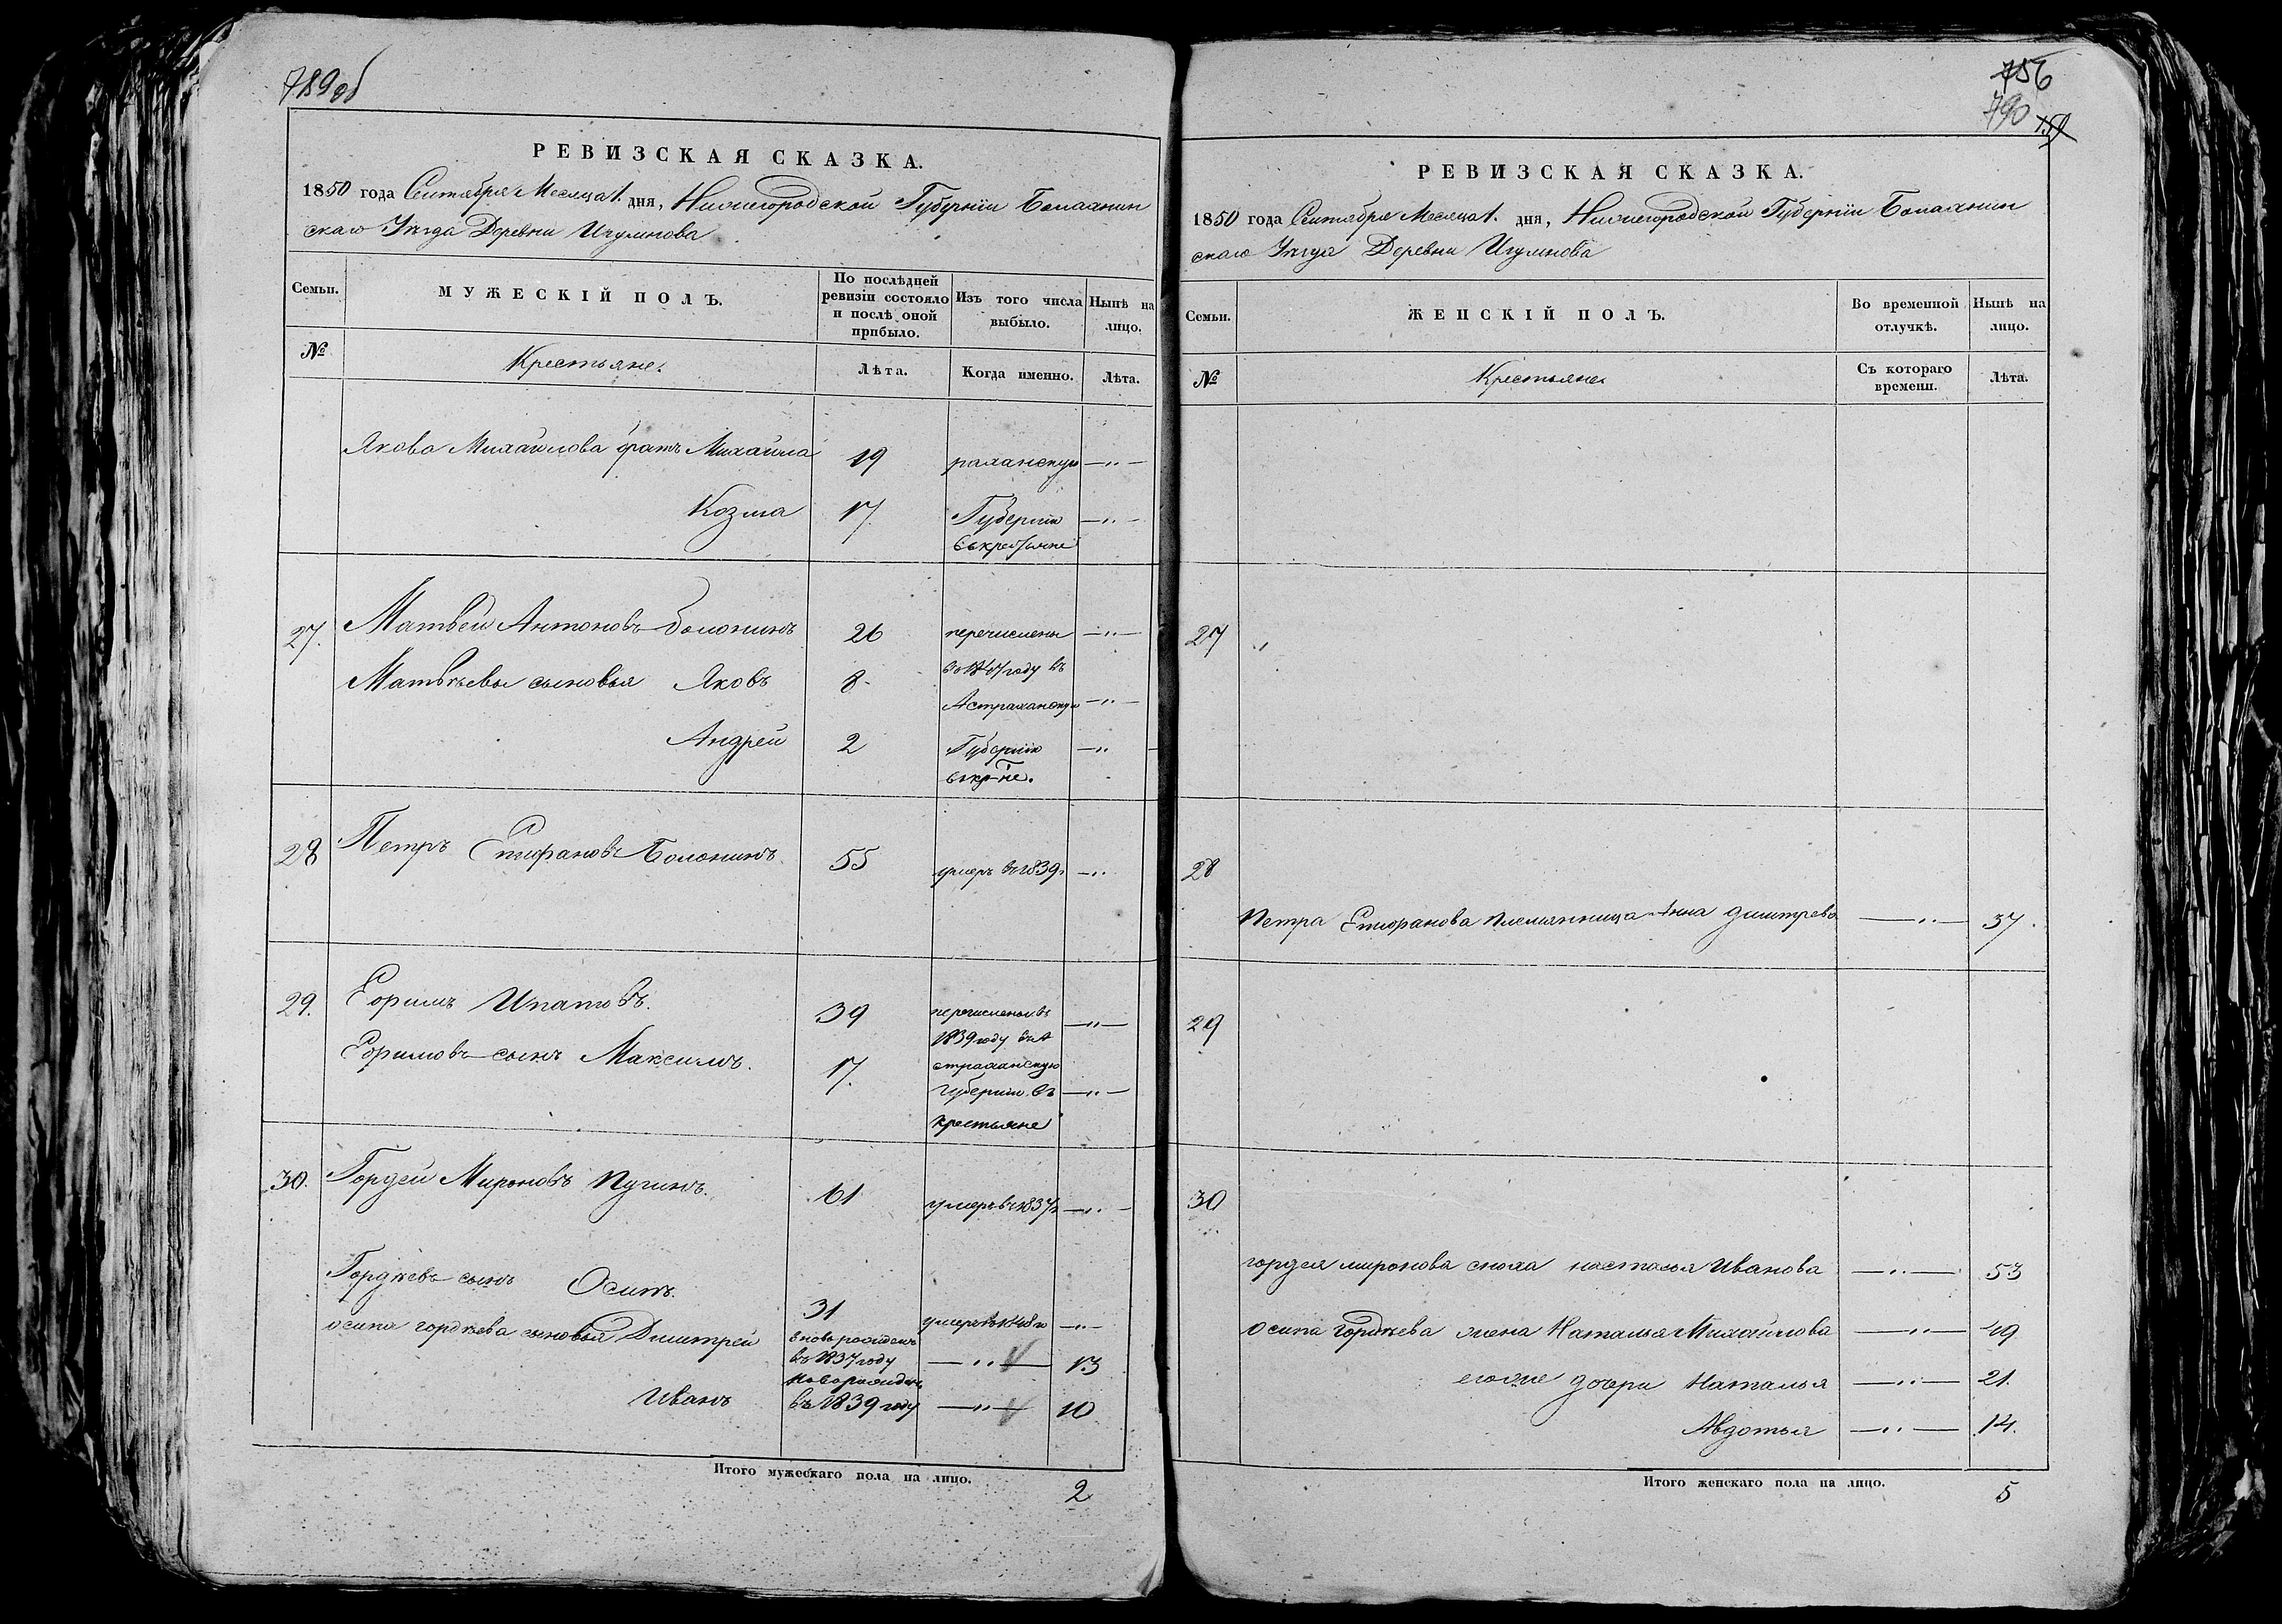 789 об
РЕВИЗСКАЯ СКАЗКА.
1850 года Сентября Месяца 1. дня, Нижегородской Губернiи Балахнин
скаго Уѣзда Деревни Игумнова
Семьи.
МУЖЕСКІЙ ПОЛЪ.
По послѣдней ревизіи состояло и послѣ оной прибыло.
Изъ того числа выбыло.
Нынѣ на лицо.
№
Крестьяне.
Лѣта.
Когда именно.
Лѣта.
Якова Михайлова братъ Михайла 19 раханскую —„—
Козма 17 Губернiю —„—
въ крестьяне
27. Матвей Антоновъ Болонинъ 26 перечислены —„—
въ 1847 году въ
Матвѣевы сыновья Яковъ 8. Астраханскую —„—
Андрей 2 Губернiю —„
въ кр-не.
28 Петръ Епифановъ Болонинъ 55 умеръ въ 1839 —„
29. Ефимъ Ипатовъ. 39 перечислены въ —„—
1839 году въ А
Ефимовъ сынъ Максимъ. 17. страханскую
губернiю въ —„—
крестьяне
30. Гордей Мироновъ Пугинъ. 61 умеръ въ 1837 —„—
Гордѣевъ сынъ Осипъ. 31 умеръ въ 1848 —„—
осипа гордѣева сыновья Дмитрей вновь рожденъ
въ 1837 году —„— 13
новорожденъ
Иванъ въ 1839 году —„— 10
Итого мужескаго пола на лицо.
2
756
790
РЕВИЗСКАЯ СКАЗКА.
1850 года Сентября Месяца 1. дня, Нижегородской Губернiи Балахнин
скаго Уѣзда Деревни Игумнова
Семьи.
ЖЕНСКІЙ ПОЛЪ.
Во временной отлучкѣ.
Нынѣ на лицо.
№
Крестьяне
Съ котораго времени.
Лѣта.
27 „
28
Петра Епифанова племянница Анна Дмитрева —„— 37.
29
30
гордея миронова сноха настасья Иванова —„— 53
Осипа Гордѣева жена Наталья Михайлова —„— 49
егоже дочери Наталья —„— 21.
Авдотья —„— 14.
Итого женскаго пола на лицо.
5